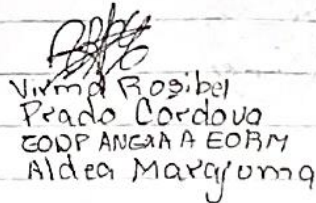 Virma Rosibel
Prado Cordova
COOP ANGXA A EORM
Aldea Marajuma